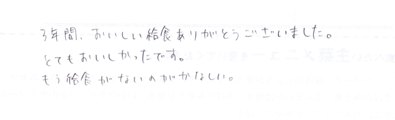 3年間、おいしい給食ありがとうございました。
とてもおいしかったです。
もう給食がないのがかなしい。